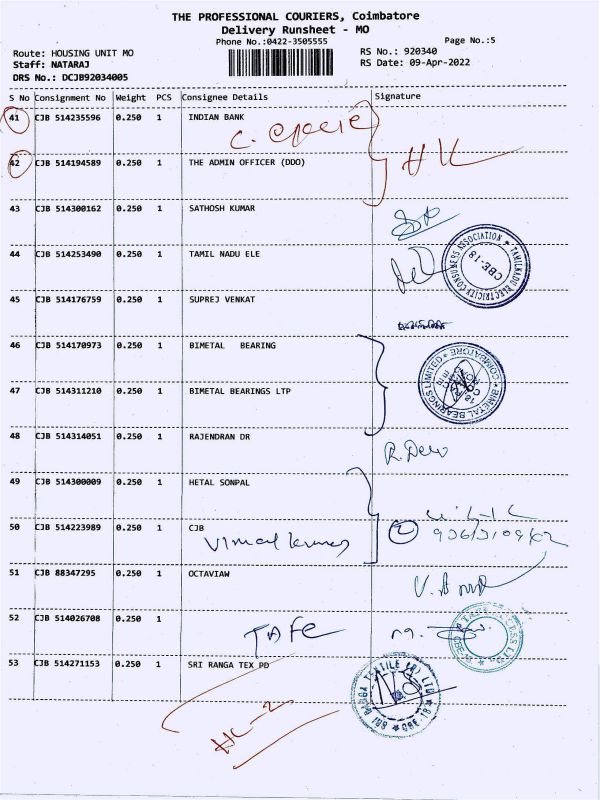 THE PROFESSIONAL COURIERS, Coimbatore
Delivery Runsheet - MO
Phone No.:0422-3505555
Page No.:5
Route: HOUSING UNIT MO
RS No.: 920340
Staff: NATARAJ
RS Date: 09-Apr-2022
DRS No.: DCJB92034005
S No Consignment No Weight PCS Consignee Details Signature
41 CJB 514235596 0.250 1 INDIAN BANK
42 CJB 514194589 0.250 1 THE ADMIN OFFICER (DDO)
43 CJB 514300162 0.250 1 SATHOSH KUMAR
44 CJB 514253490 0.250 1 TAMIL NADU ELE
TAMILNADU ELECTRICITY CONSUMERS ASSOCIATION
CBE-18
45 CJB 514176759 0.250 1 SUPREJ VENKAT
46 CJB 514170973 0.250 1 BIMETAL BEARING
BIMETAL BEARINGS LIMITED
COIMBATORE
47 CJB 514311210 0.250 1 BIMETAL BEARINGS LTP
48 CJB 514314051 0.250 1 RAJENDRAN DR
49 CJB 514300009 0.250 1 HETAL SONPAL
50 CJB 514223989 0.250 1 CJB
Vimal kumar
51 CJB 88347295 0.250 1 OCTAVIAW
52 CJB 514026708 0.250 1
TAFE
53 CJB 514271153 0.250 1 SRI RANGA TEX PD